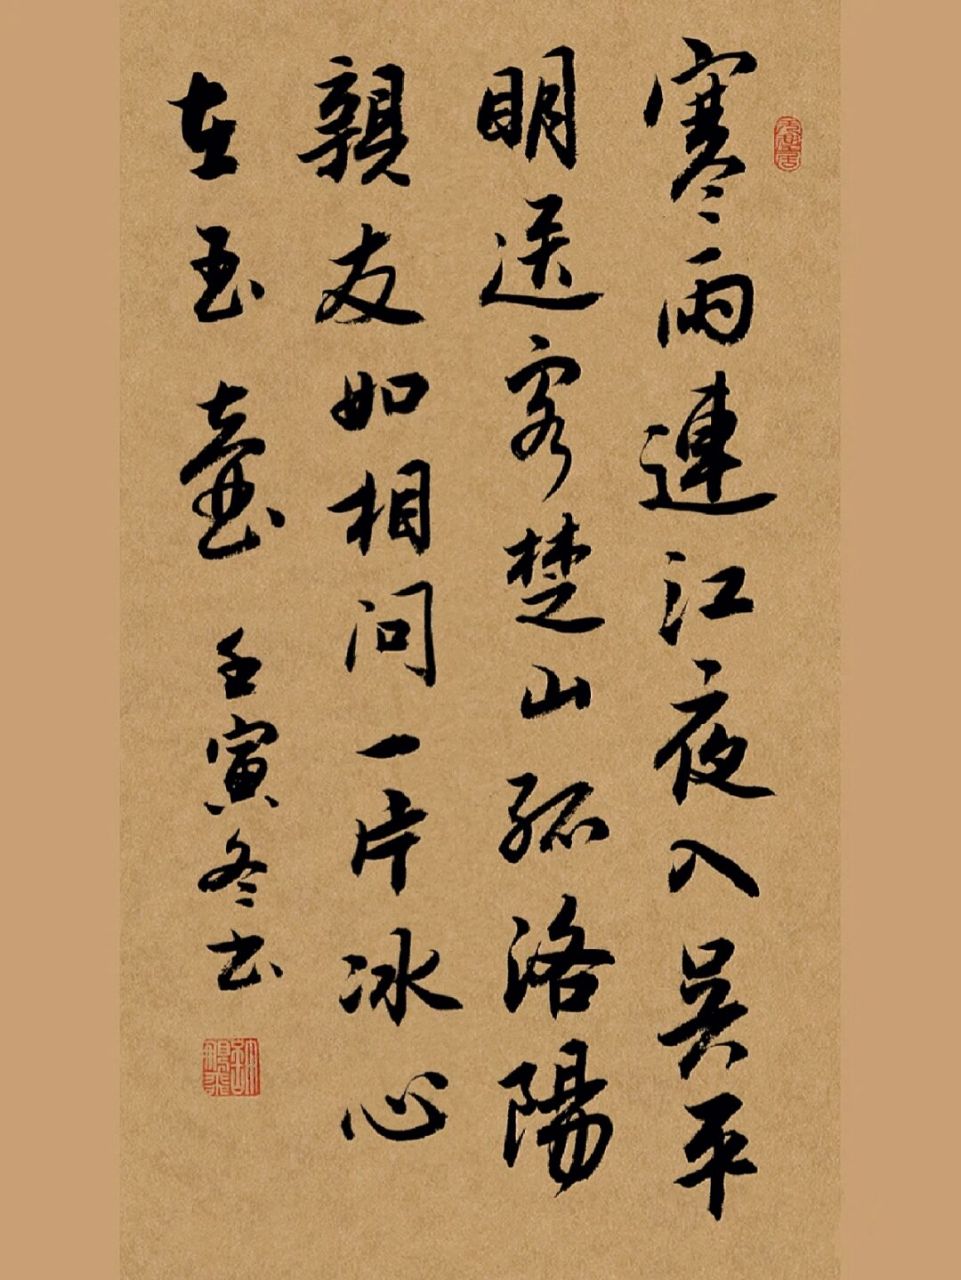 寒雨連江夜入吴平
明送客楚山孤洛陽
親友如相問一片冰心
在玉壺 壬寅冬书